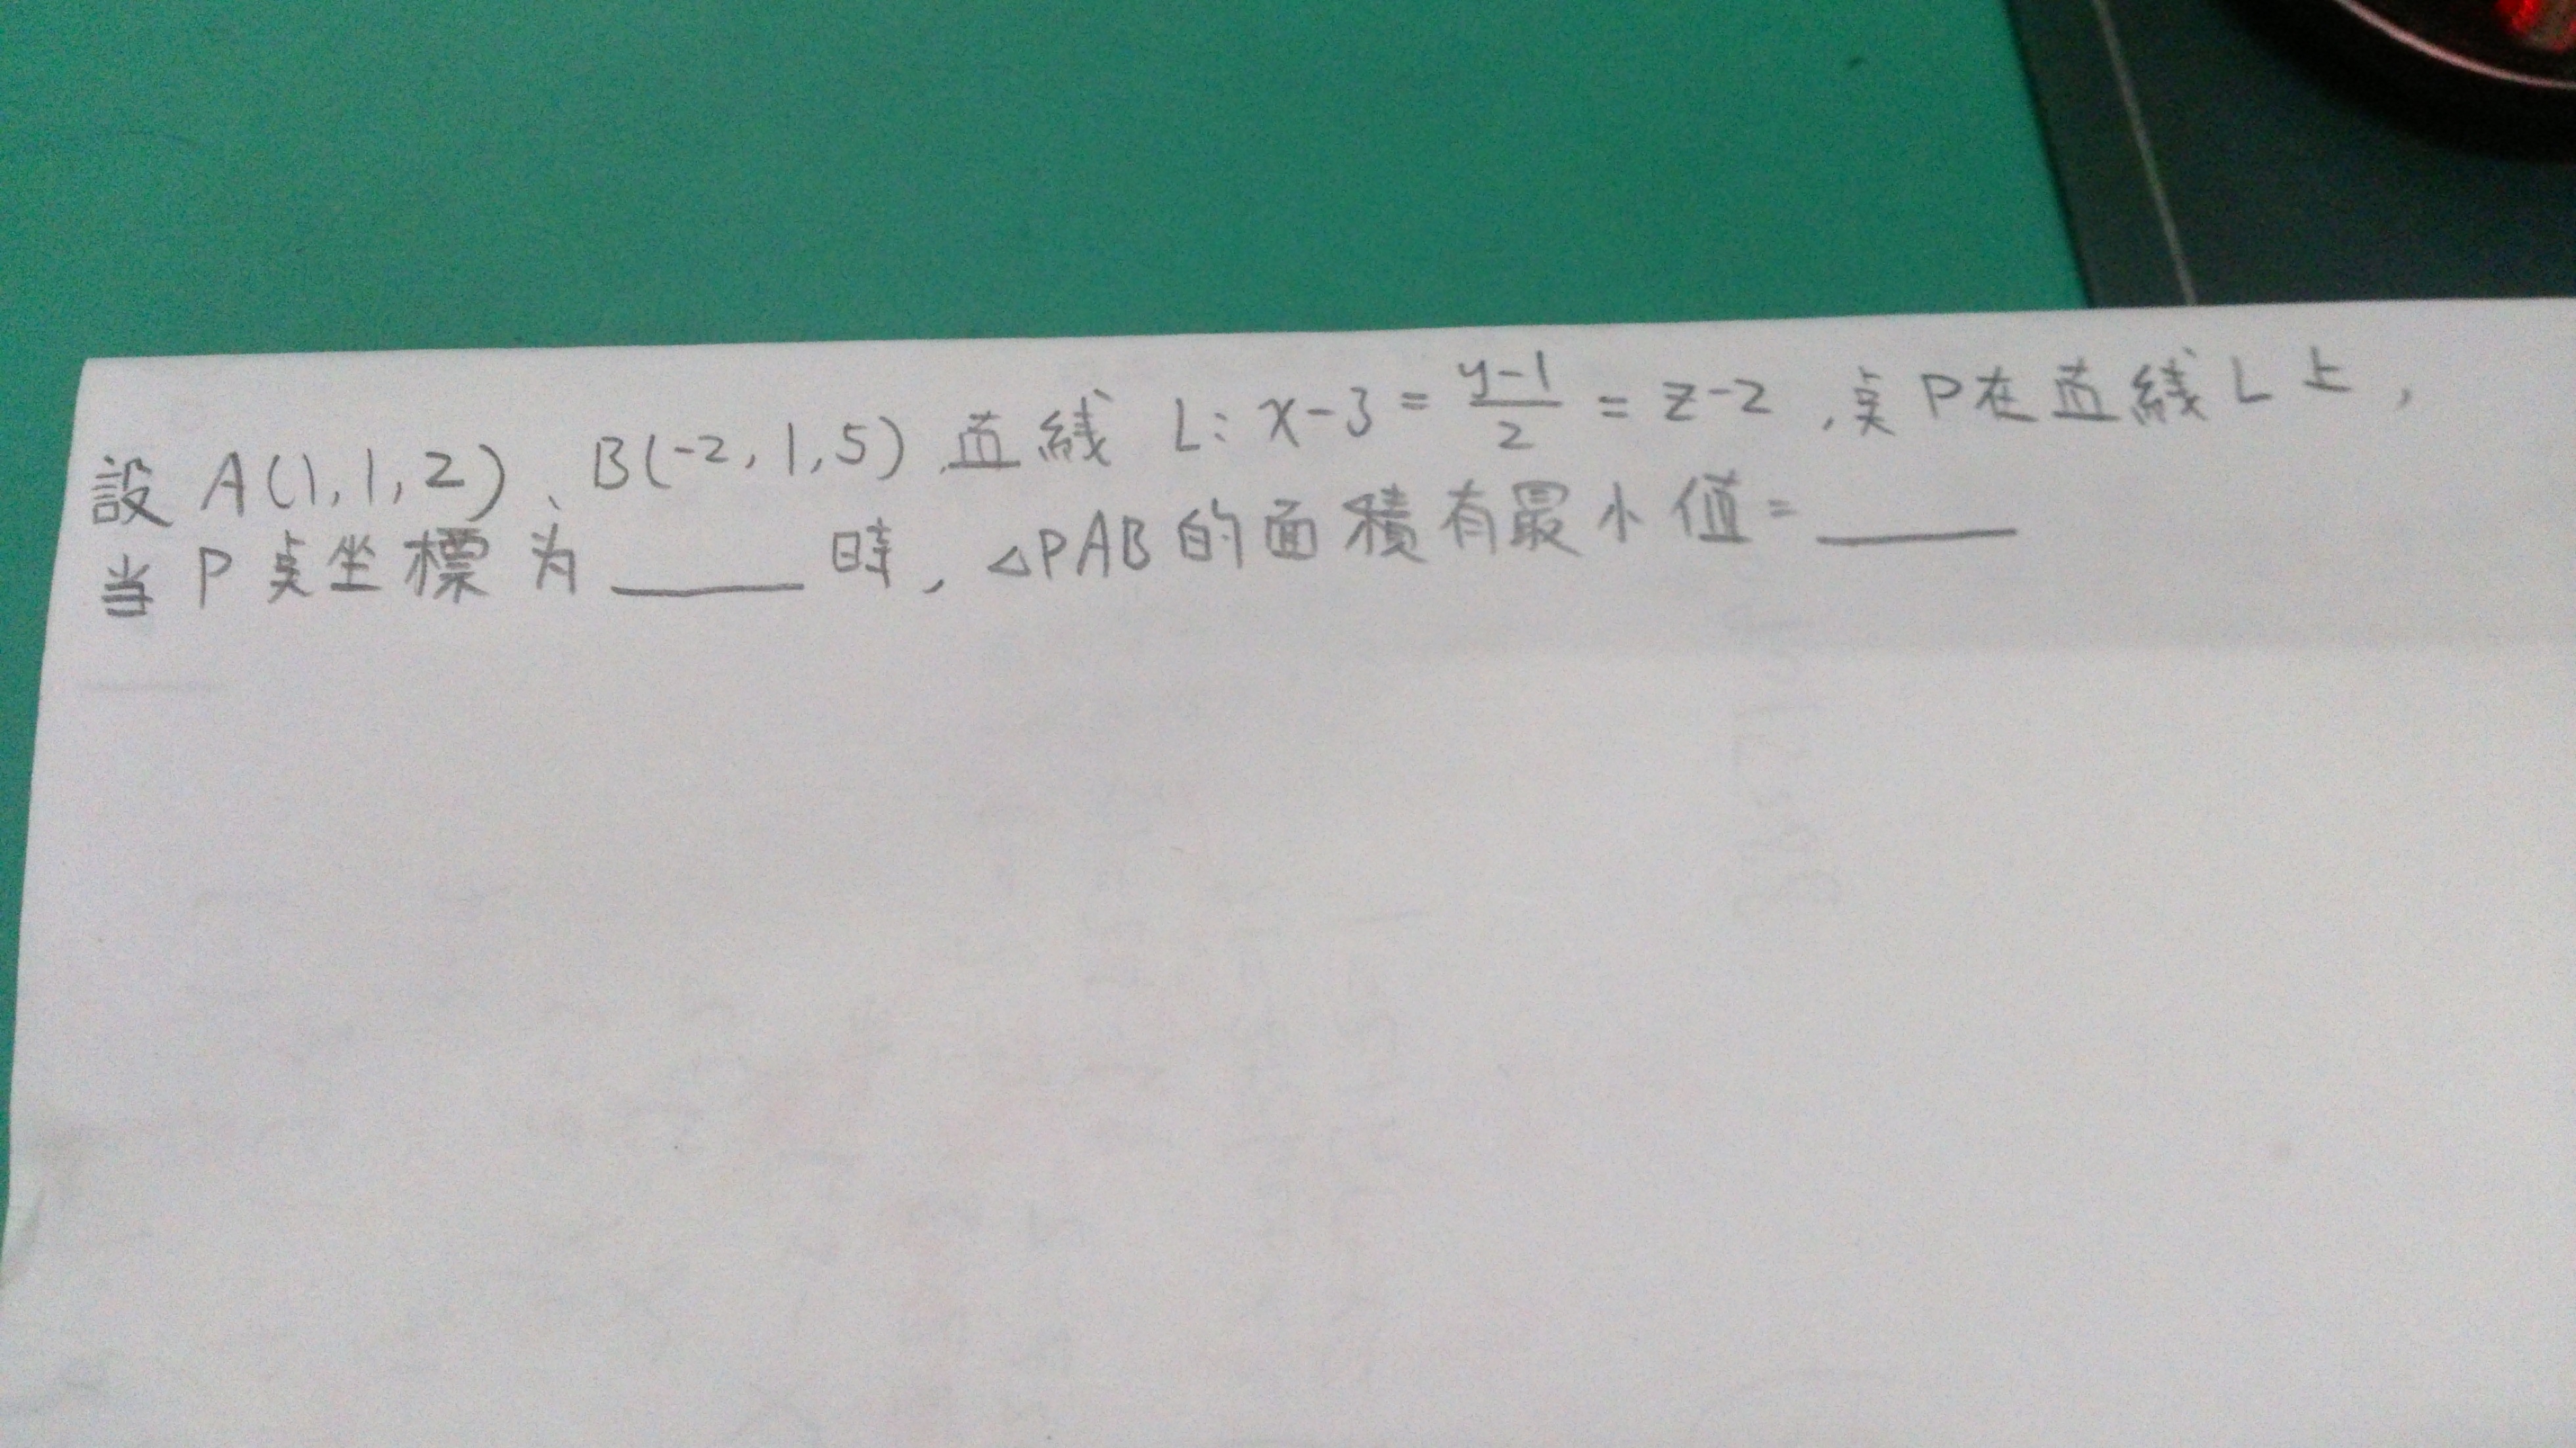 設 A(1,1,2)、B(-2,1,5) 直線 L: x-3 = \frac{y-1}{2} = z-2 ,点 P在直線 L 上,
当 P 点坐標为 ____ 時, △PAB 的面積有最小值= ____